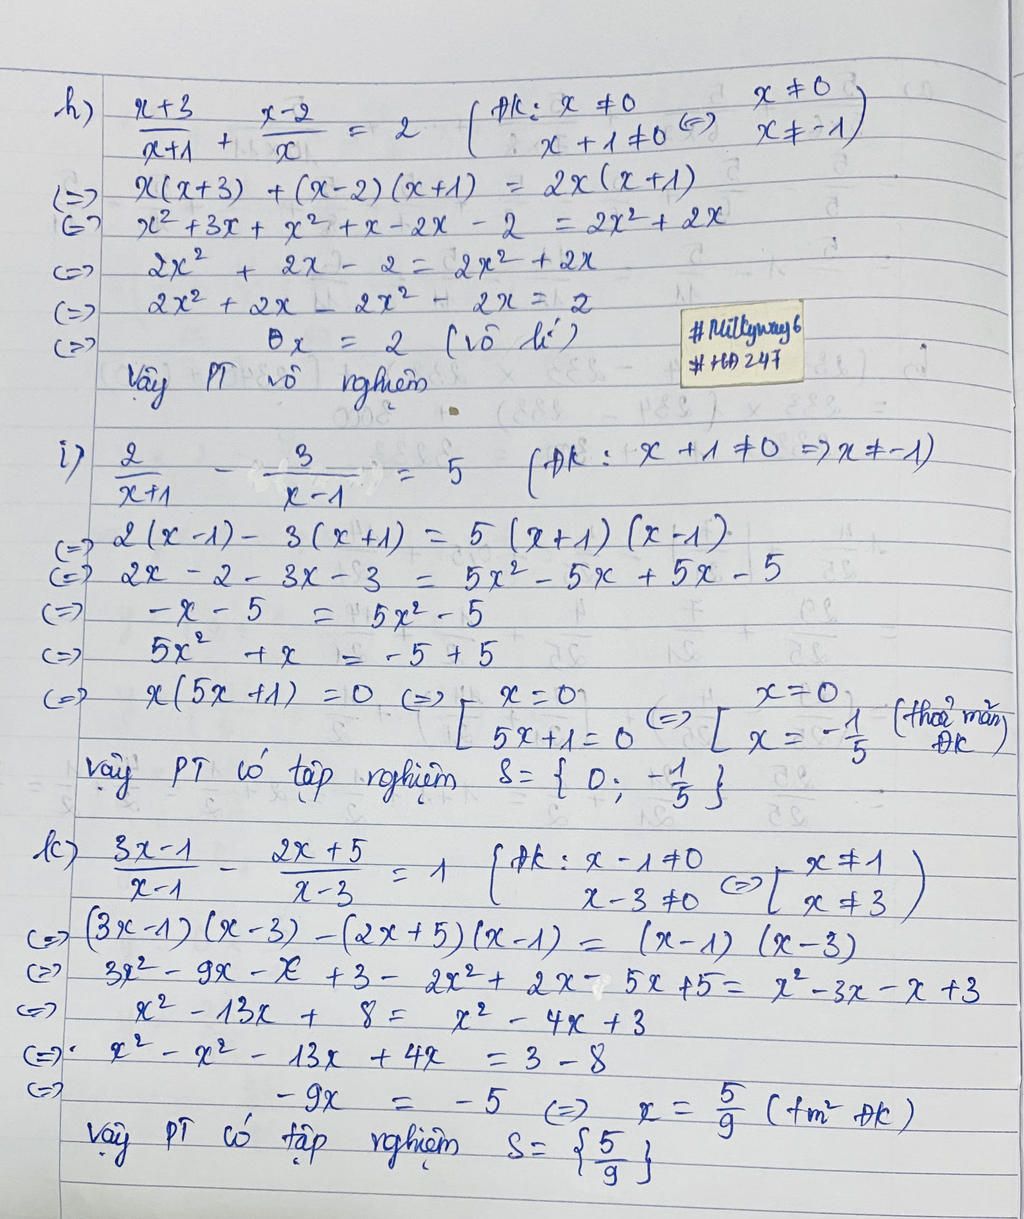 h) \frac{x+3}{x+1} + \frac{x-2}{x} = 2 ( ĐK: x ≠ 0 x + 1 ≠ 0 <=> x ≠ 0 x ≠ -1 )
<=> x(x+3) + (x-2)(x+1) = 2x(x+1)
<=> x² + 3x + x² + x - 2x - 2 = 2x² + 2x
<=> 2x² + 2x - 2 = 2x² + 2x
<=> 2x² + 2x - 2x² - 2x = 2
<=> 0x = 2 (vô lí)
#Milkyway6
#HĐ247
Vậy PT vô nghiệm
i) \frac{2}{x+1} - \frac{3}{x-1} = 5 (ĐK: x + 1 ≠ 0 => x ≠ -1)
<=> 2(x-1) - 3(x+1) = 5(x+1)(x-1)
<=> 2x - 2 - 3x - 3 = 5x² - 5x + 5x - 5
<=> -x - 5 = 5x² - 5
<=> 5x² + x = -5 + 5
<=> x(5x+1) = 0 <=> [ x = 0 5x+1 = 0 <=> [ x = 0 x = -\frac{1}{5} (thoả mãn ĐK)
Vậy PT có tập nghiệm S = { 0; -\frac{1}{5} }
k) \frac{3x-1}{x-1} - \frac{2x+5}{x-3} = 1 ( ĐK: x - 1 ≠ 0 x - 3 ≠ 0 <=> [ x ≠ 1 x ≠ 3 )
<=> (3x-1)(x-3) - (2x+5)(x-1) = (x-1)(x-3)
<=> 3x² - 9x - x + 3 - 2x² + 2x - 5x + 5 = x² - 3x - x + 3
<=> x² - 13x + 8 = x² - 4x + 3
<=> x² - x² - 13x + 4x = 3 - 8
<=> -9x = -5 <=> x = \frac{5}{9} (tm² ĐK)
Vậy PT có tập nghiệm S = { \frac{5}{9} }